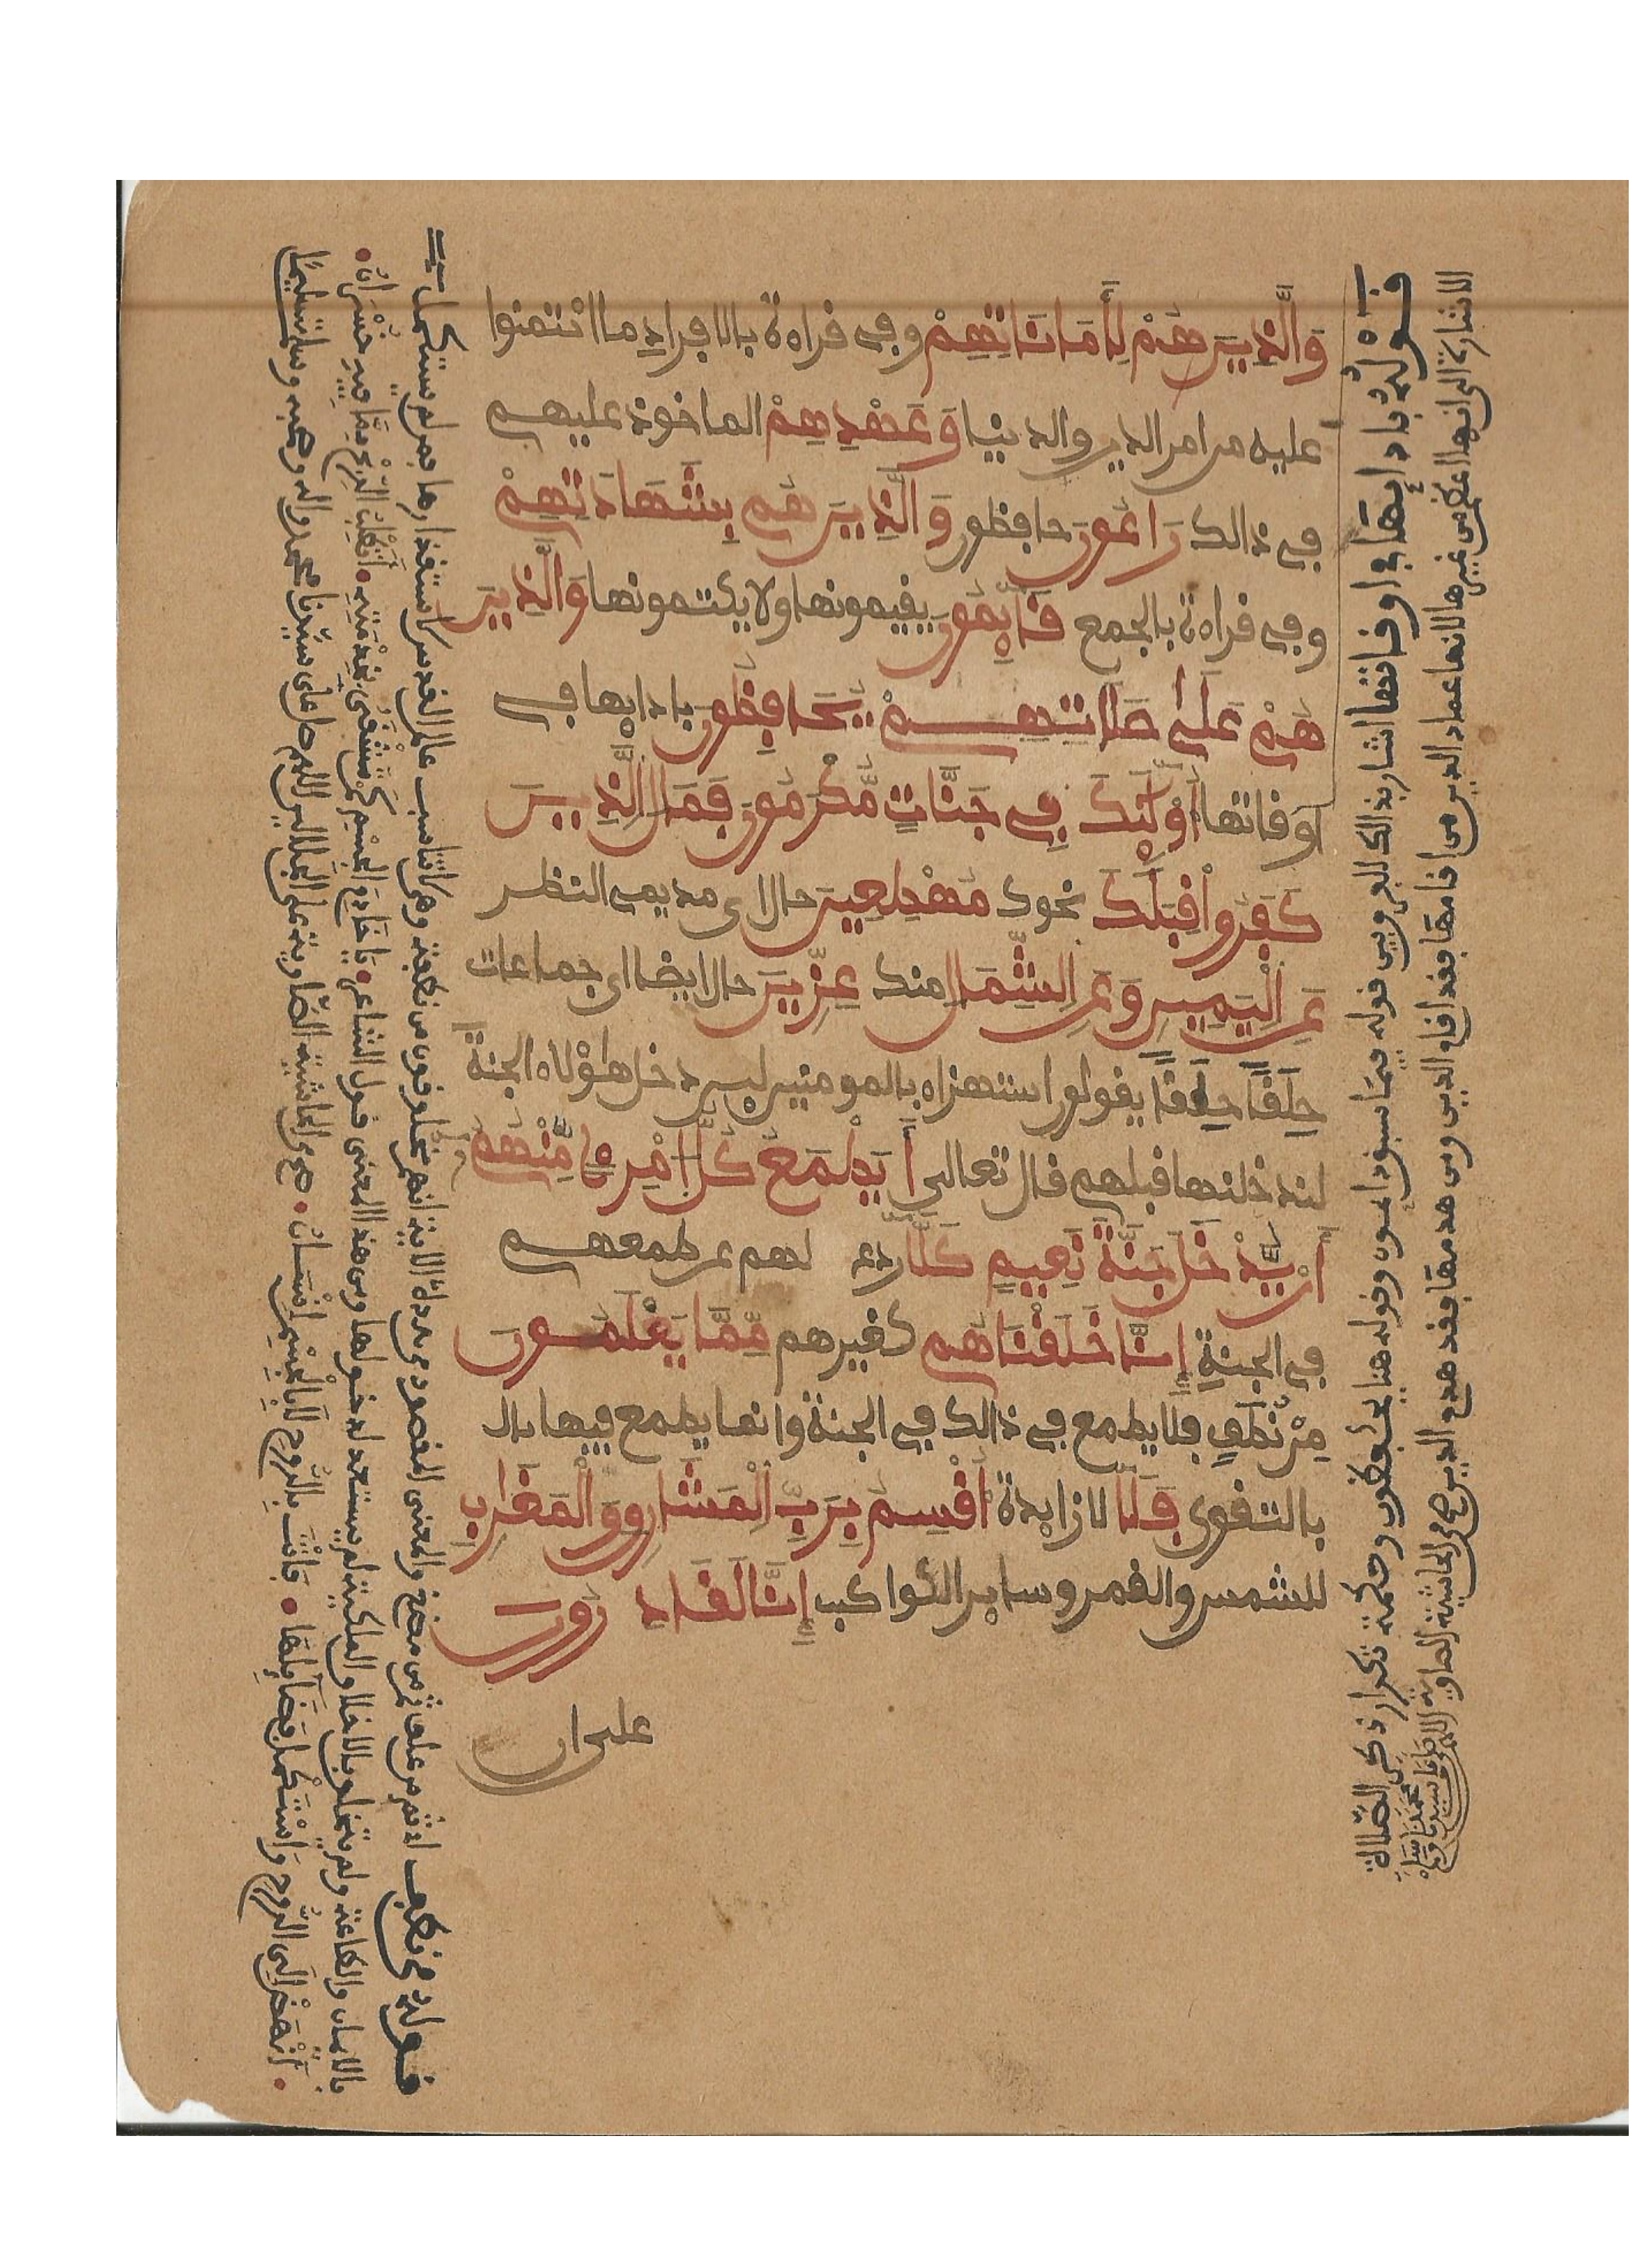 وَالَّذِينَ هُمْ لِأَمَانَاتِهِمْ وفي قراءة بالافراد ما ائتمنوا
عليه من امر الدين والدنيا وَعَهْدِهِمْ الماخوذ عليهم
في ذالك رَاعُونَ حافظون وَالَّذِينَ هُم بِشَهَادَتِهِمْ
وفي قراءة بالجمع قَائِمُونَ يقيمونها ولا يكتمونها وَالَّذِينَ
هُمْ عَلَىٰ صَلَاتِهِمْ يُحَافِظُونَ بادايها في
اوقاتها أُوْلَئِكَ فِي جَنَّاتٍ مُّكْرَمُونَ فَمَالِ الَّذِينَ
كَفَرُواْ قِبَلَكَ نحوك مُهْطِعِينَ حال اى مديمى النظر
عَنِ الْيَمِينِ وَعَنِ الشِّمَالِ منك عِزِينَ حال ايضا اى جماعات
حِلَقًا حِلَقًا يقولون استهزاء بالمومنين لين دخل هؤلاء الجنة
لندخلنها قبلهم قال تعالى أَيَطْمَعُ كُلُّ امْرِئٍ مِّنْهُمْ
أَنْ يُّدْخَلَ جَنَّةَ نَعِيمٍ كَلَّا ردع لهم عن طمعهم
في الجنة إِنَّا خَلَقْنَاهُم كغيرهم مِّمَّا يَعْلَمُونَ
مِنْ نُّطَفٍ فلا يطمع في ذالك في الجنة وانما يطمع فيها بال
بالتقوى فَلَا لا زايدة أُقْسِمُ بِرَبِّ الْمَشَارِقِ وَالْمَغَارِبِ
للشمس والقمر وساير الكواكب إِنَّا لَقَادِرُونَ
على ان
قَوْلُهُ بادايها في اوقاتها اشار بذالك للفرق بين قوله فيما سبق دايمون وقوله هنا يحافظون وحكمة تكرار ذكر الصلاة
الاشارة الى انها اعظم من غيرها لانها عماد الدين من اقامها فقد اقام الدين ومن هدمها فقد هدم الدين صح من الحاشية الصاوية
قوله من نطف اى ثم من علق ثم من مضغ والمعنى المقصود من هذه الاية انهم مخلوقون من نطفة وهى لا تناسب عالم القدس استقذارها فمن لم يستكمل
بالايمان والطاعة ولم يتخلق بالاخلاق الملكية لم يستعد لدخولها ومن هذا المعنى قول الشاعر يَا خَادِمَ الْجِسْمِ كَمْ تَشْقَى بِخِدْمَتِهِ أَتَطْلُبُ الرِّبْحَ مِمَّا فِيهِ خُسْرَانُ
انْهَضْ إِلَى الرُّوحِ وَاسْتَكْمِلْ فَضَائِلَهَا فَأَنْتَ بِالرُّوحِ لَا بِالْجِسْمِ إِنْسَانُ صح من الحاشية الصاوية على الجلالين اللهم صل على سيدنا محمد واله وصحبه وسلم تسليما